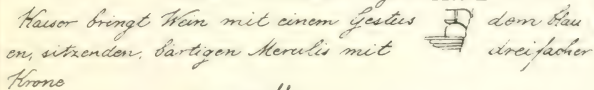 Kaiser bringt Wein mit einem Gestus dem blau
en, sitzenden, bärtigen Merulis mit dreifacher
Krone